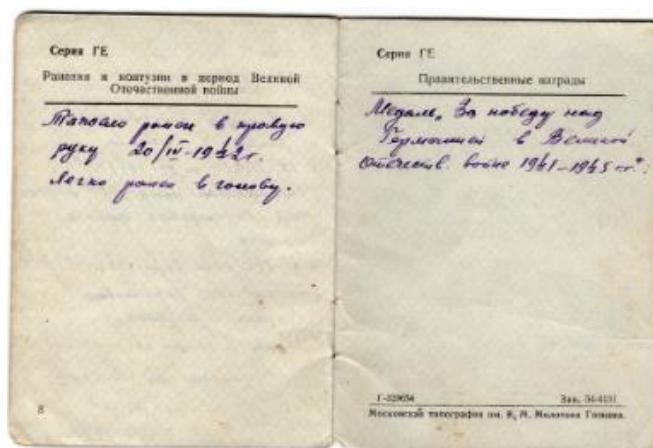 Серия ГЕ
Ранения и контузии в период Великой
Отечественной войны
Тяжело ранен в правую
руку 20/IV-1942г.
Легко ранен в голову.
8
Серия ГЕ
Правительственные награды
Медаль „За победу над
Германией в Великой
Отечеств. войне 1941–1945 гг“.
Г-329654 Зак.
Московская типография им. В. М. Молотова Гознака.